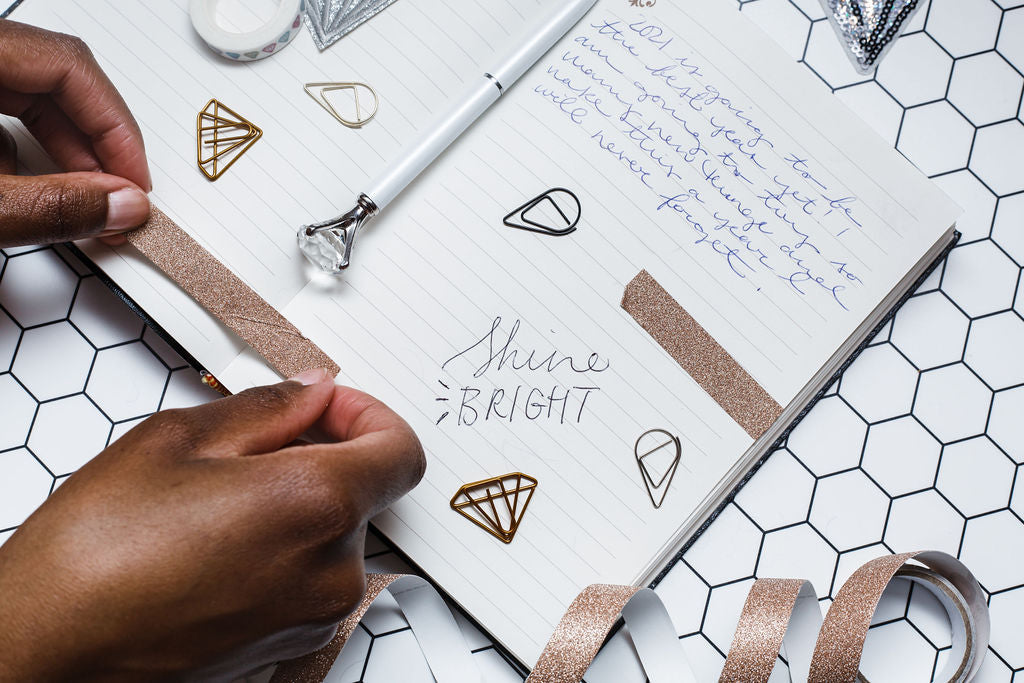 2021 is going to be
the best year yet! I
am going to try so
many new things and
make this a year I
will never forget!
Shine
BRIGHT